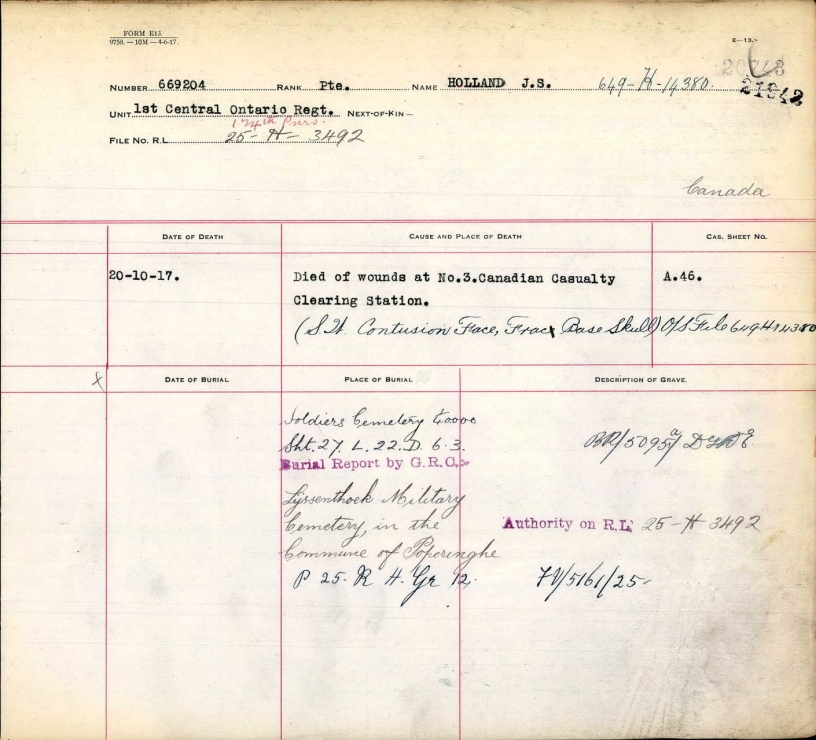 FORM E13.
9758.—10M—4-6-17.
E—13.
20743
21942
NUMBER 669204 RANK Pte. NAME HOLLAND J.S. 649-H-14380.
UNIT 1st Central Ontario Regt. NEXT-OF-KIN—
FILE No. R.L. 25-H-3492
Canada
DATE OF DEATH CAUSE AND PLACE OF DEATH CAS. SHEET NO.
20-10-17. Died of wounds at No.3.Canadian Casualty A.46.
Clearing Station.
(S.W. Contusion Face, Frac Base Skull) O/S File 649H14380
X DATE OF BURIAL PLACE OF BURIAL DESCRIPTION OF GRAVE.
Soldiers Cemetery 40000
Sht. 27. L. 22. D. 6. 3.
Burial Report by G.R.C.
Lijssenthoek Military
Cemetery, in the Authority on R.L. 25-H-3492
Commune of Poperinghe
P 25. R H. Gr 12. FV/5161/25-